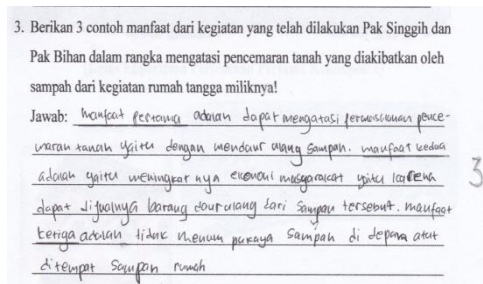 3. Berikan 3 contoh manfaat dari kegiatan yang telah dilakukan Pak Singgih dan
Pak Bihan dalam rangka mengatasi pencemaran tanah yang diakibatkan oleh
sampah dari kegiatan rumah tangga miliknya!
Jawab: manfaat pertama adalah dapat mengatasi permasalahan pence-
maran tanah yaitu dengan mendaur ulang sampah. manfaat kedua
adalah yaitu meningkat nya ekonomi masyarakat yaitu karena
dapat dijualnya barang daur ulang dari sampah tersebut. manfaat
ketiga adalah tidak menumpuknya sampah di depan atau
ditempat sampah rumah
3